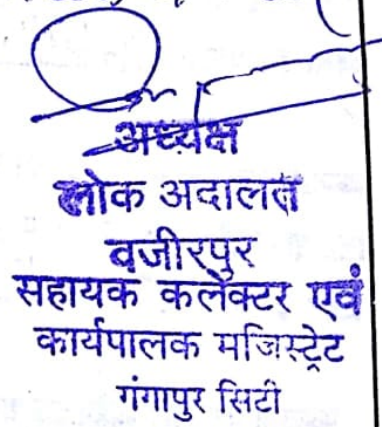 अध्यक्ष
लोक अदालत
वजीरपुर
सहायक कलेक्टर एवं
कार्यपालक मजिस्ट्रेट
गंगापुर सिटी